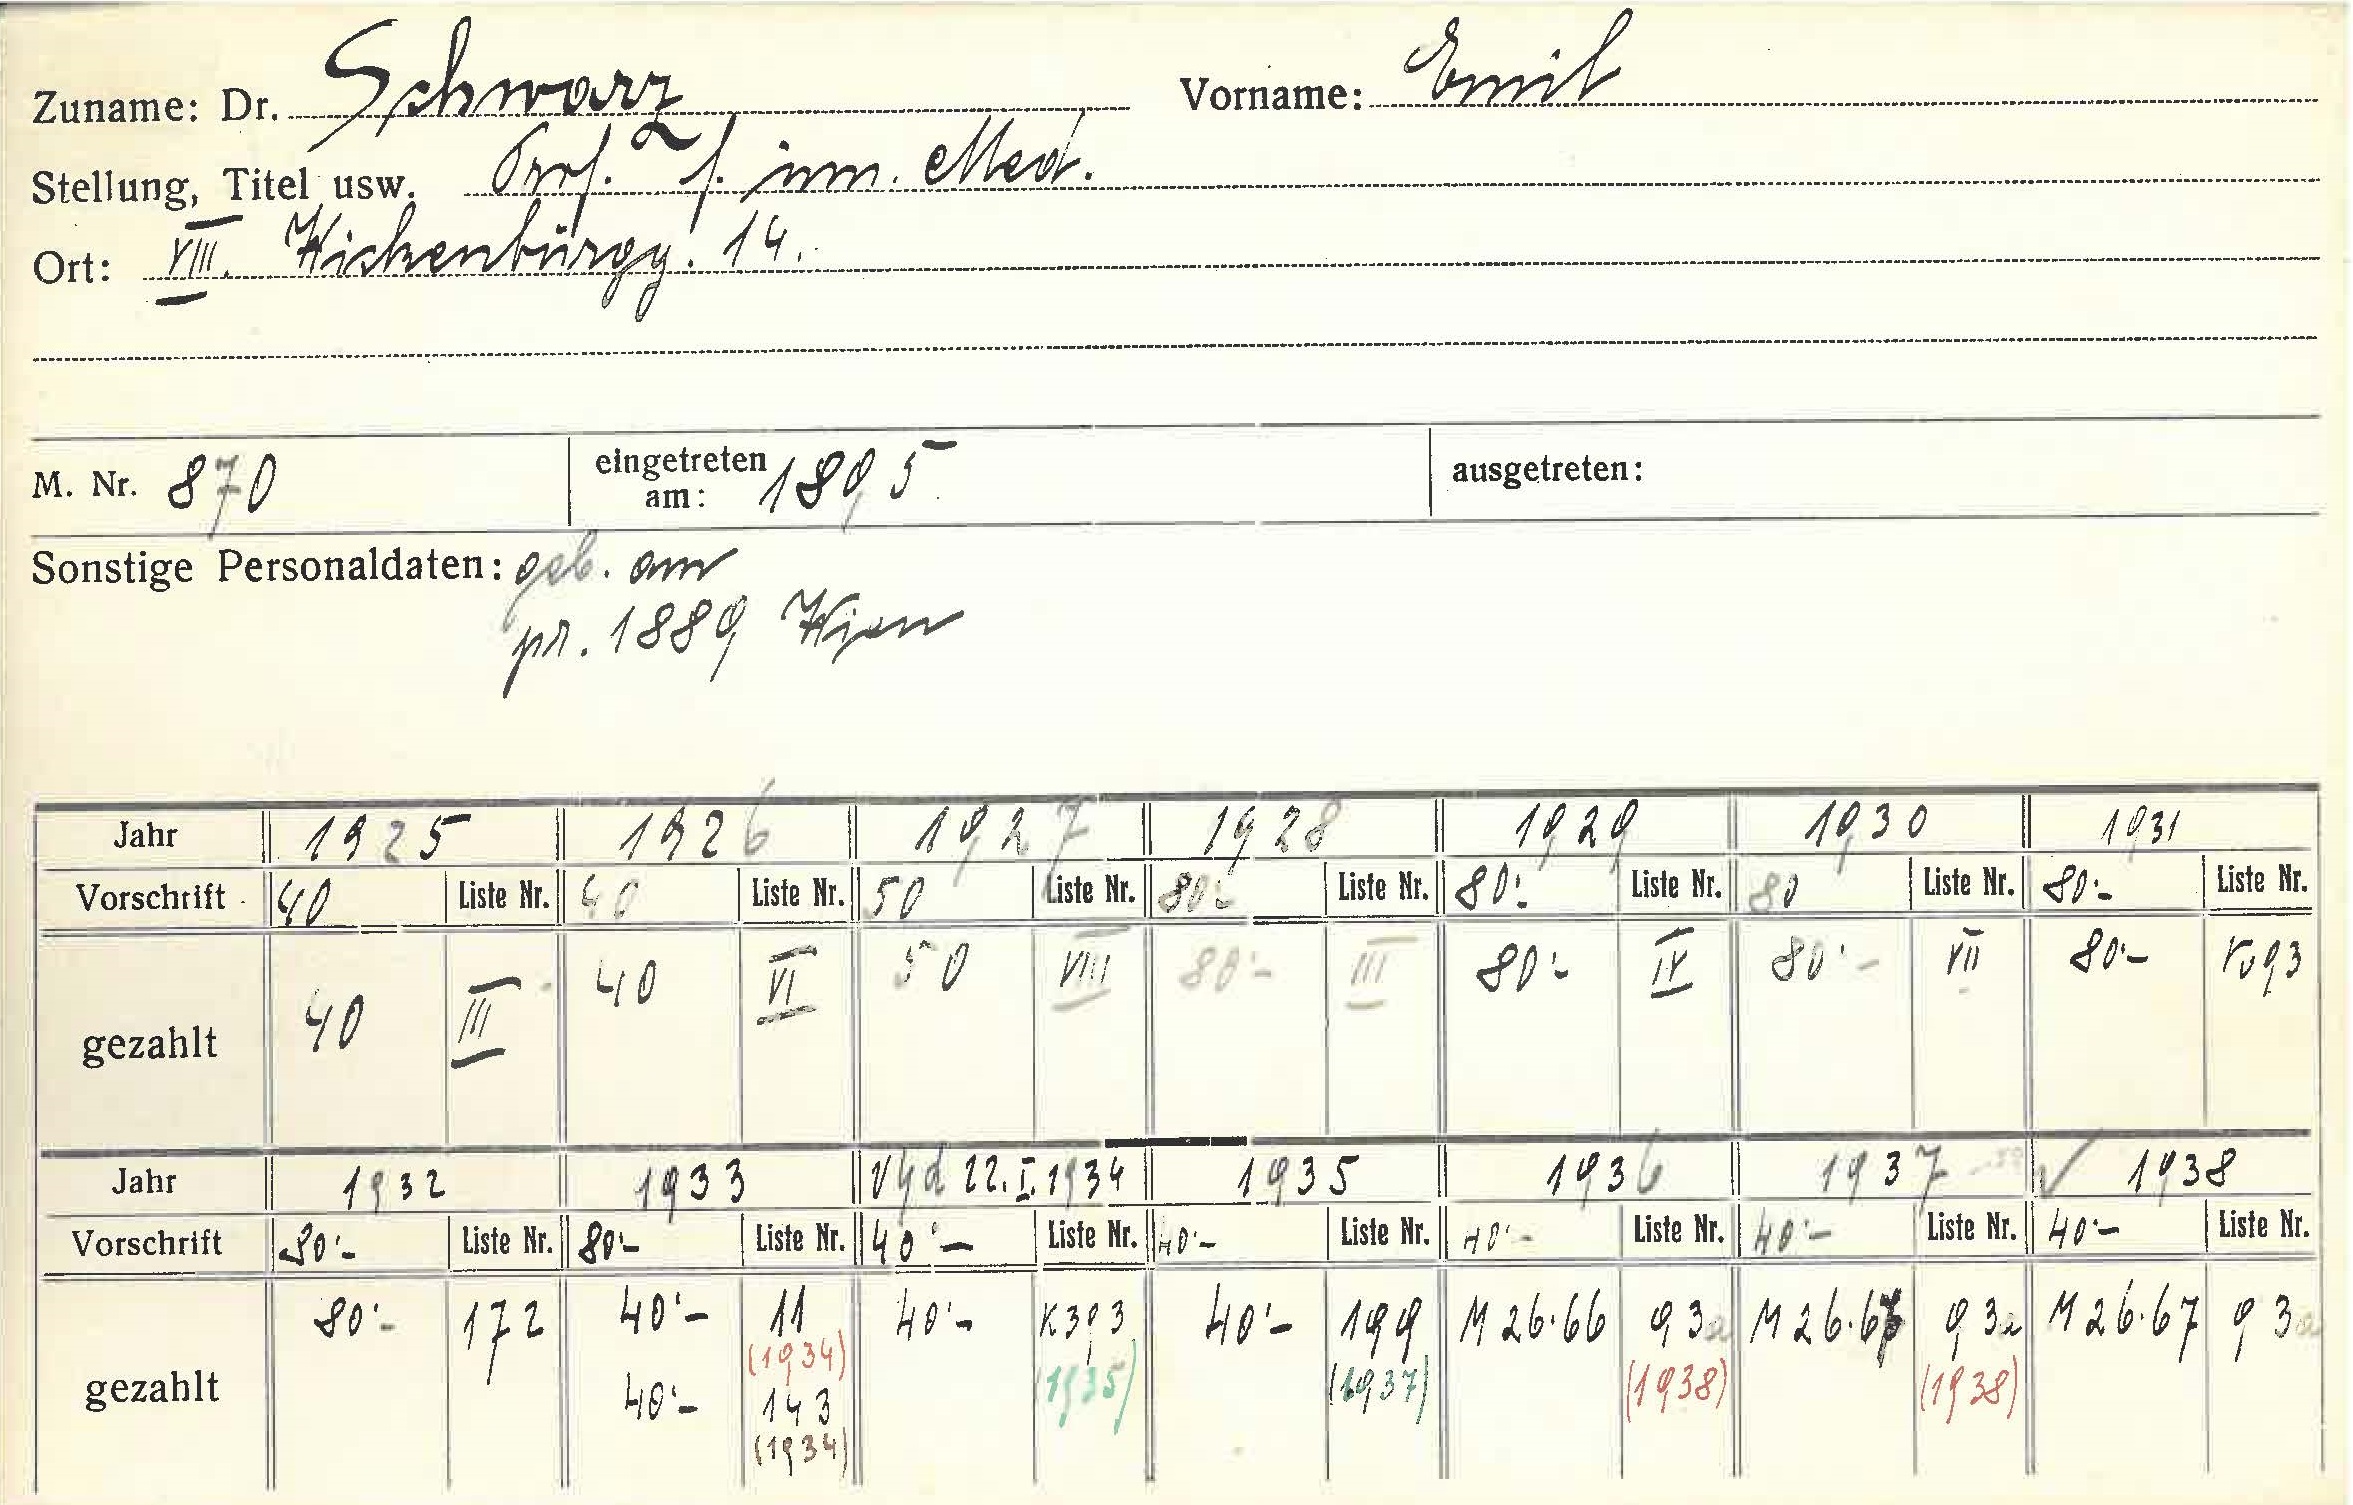 Zuname: Dr. Schwarz Vorname: Emil
Stellung, Titel usw. Prof. f. inn. Med.
Ort: VIII. Wickenburgg. 14.
M. Nr. 870 eingetreten am: 1895 ausgetreten:
Sonstige Personaldaten: geb. am
pr. 1889 Wien
Jahr 1925 1926 1927 1928 1929 1930 1931
Vorschrift 40 Liste Nr. 40 Liste Nr. 50 Liste Nr. 80.- Liste Nr. 80.- Liste Nr. 80 Liste Nr. 80.- Liste Nr.
gezahlt 40 III 40 VI 50 VIII 80.- III 80.- IV 80.- VII 80.- 93
Jahr 1932 1933 22.I.1934 1935 1936 1937 1938
Vorschrift 80.- Liste Nr. 80.- Liste Nr. 40.- Liste Nr. 40.- Liste Nr. 40.- Liste Nr. 40.- Liste Nr. 40.- Liste Nr.
gezahlt 80.- 172 40.- 11 40.- K393 40.- 199 M 26.66 93a M 26.67 93a M 26.67 93a
(1934) (1935) (1937) (1938) (1938)
40.- 143
(1934)